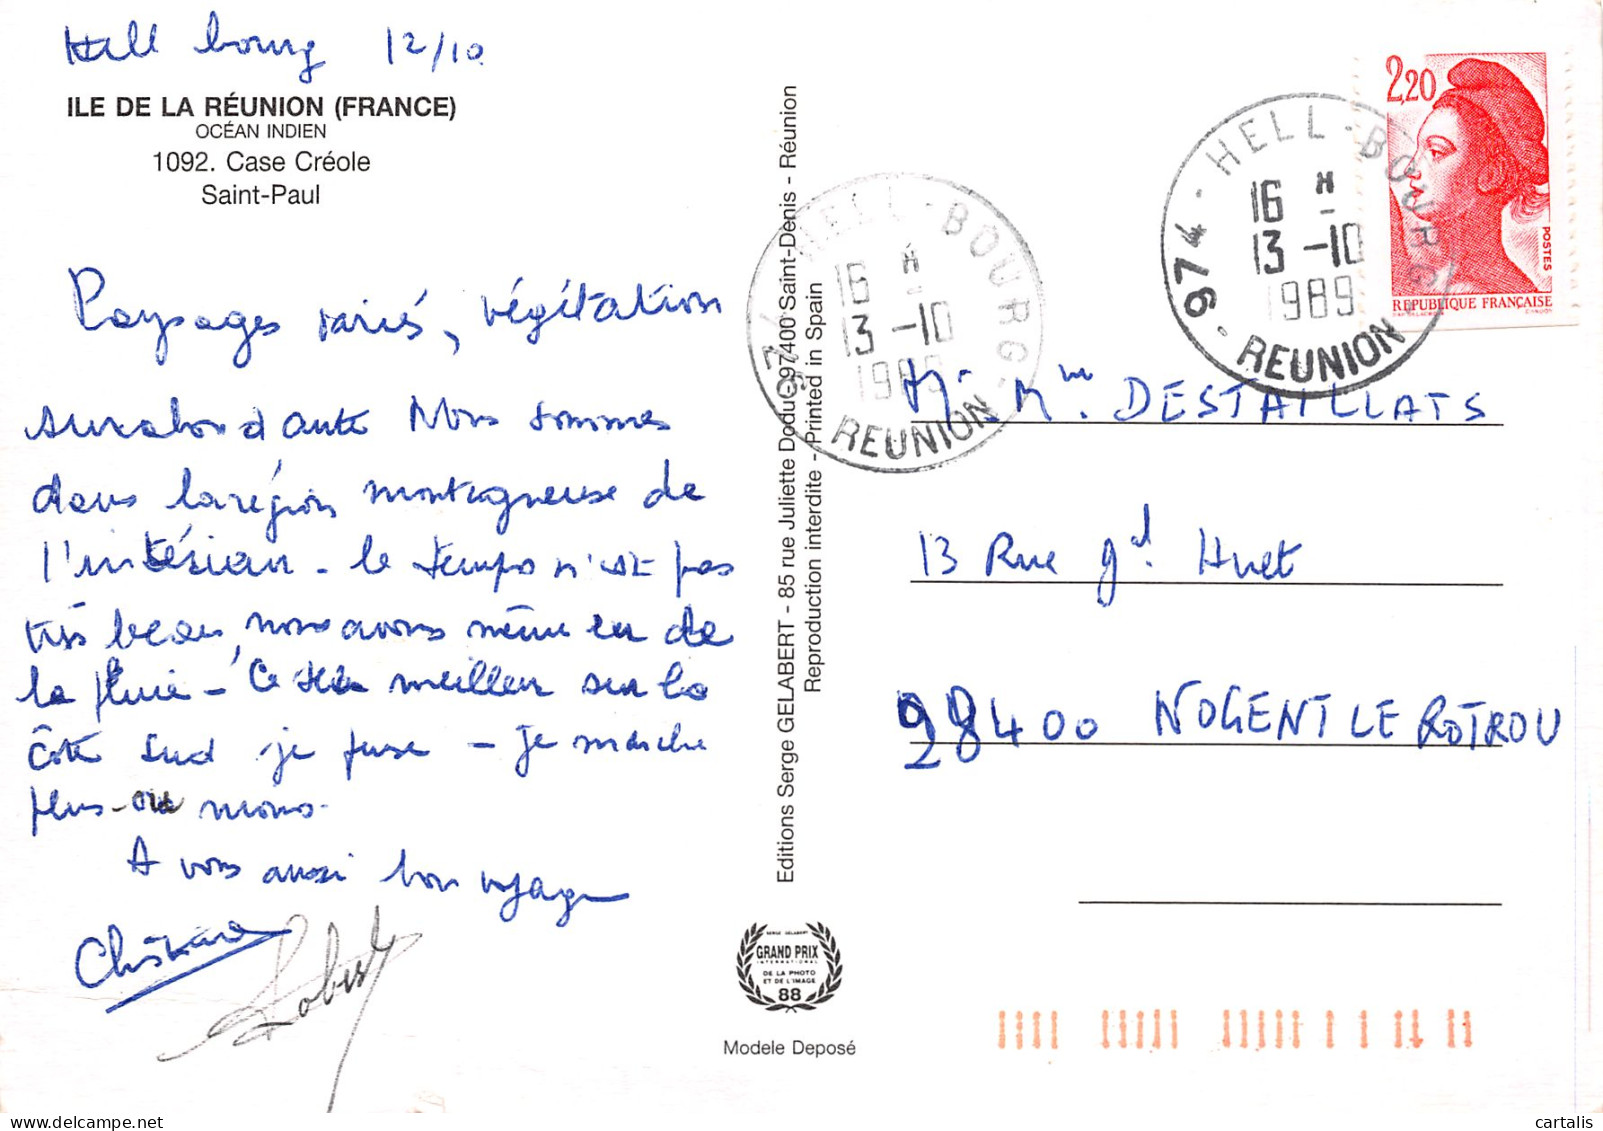 Hell bourg 12/10
ILE DE LA RÉUNION (FRANCE)
OCÉAN INDIEN
1092. Case Créole
Saint-Paul
Paysages variés, végétation
surabondante Nous sommes
dans la région montagneuse de
l'intérieur - le temps n'est pas
très beau, nous avons même eu de
la pluie - Ce sera meilleur sur la
côte sud je pense - Je marche
plus ou moins -
A vous aussi bon voyage
Christiane
Robert
Editions Serge GELABERT - 85 rue Juliette Dodu - 97400 Saint-Denis - Réunion
Reproduction interdite - Printed in Spain
SERGE GELABERT
GRAND PRIX
INTERNATIONAL
DE LA PHOTO
ET DE L'IMAGE
88
Modele Deposé
974 - HELL-BOURG -
16 H
13 -10
1989
REUNION
974 - HELL-BOURG
16 H
13 -10
1989
REUNION
2,20
POSTES
REPUBLIQUE FRANÇAISE
M. Mme. DESTAILLATS
13 Rue gal. Huet
28400 NOGENT LE ROTROU
cartalis